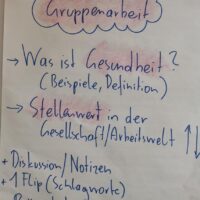 Gruppenarbeit
→ Was ist Gesundheit?
(Beispiele, Definition)
→ Stellenwert in der
Gesellschaft/Arbeitswelt ↑↓
+ Diskussion/Notizen
+ 1 Flip (Schlagworte)